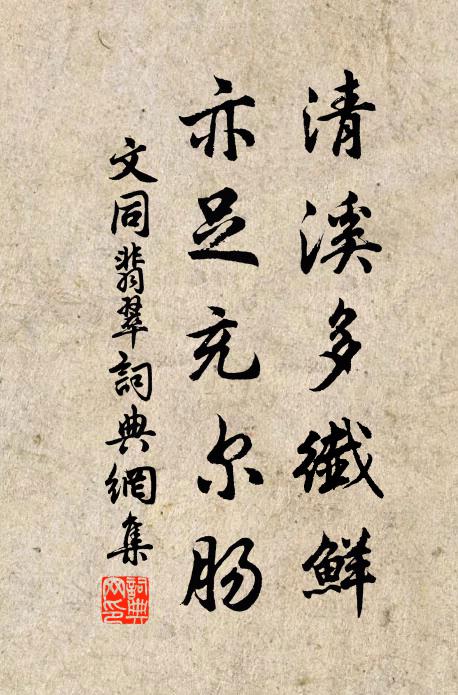 清溪多纖鮮
亦足充尔肠
文同翡翠詞典網集
詞典
网印